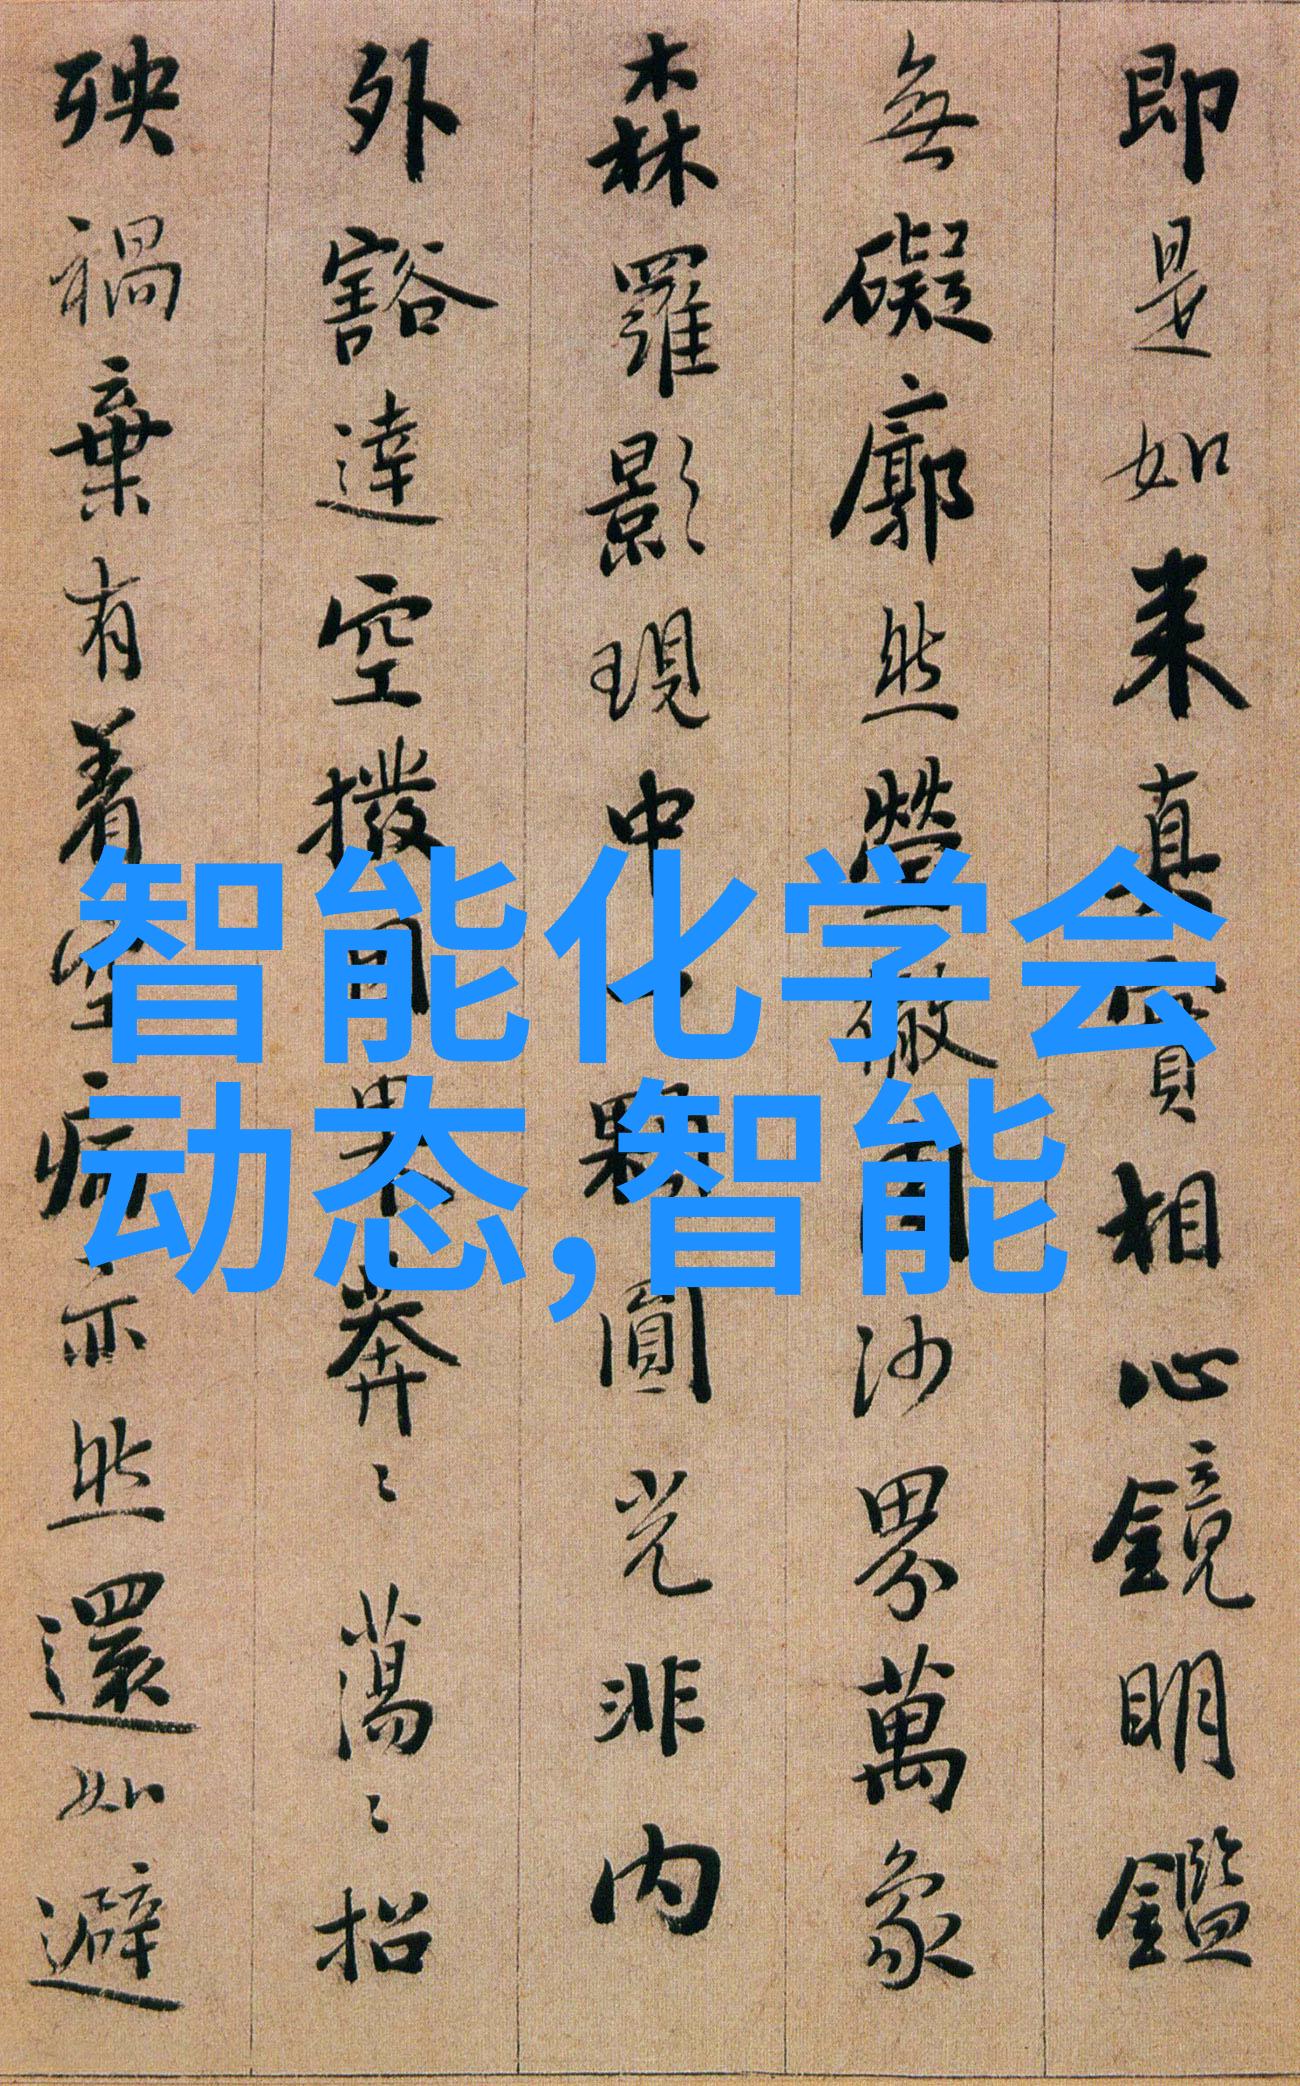 即是如来真實相心鏡明鑑
無礙廓然瑩徹周沙界萬象
森羅影現中一顆圓光非内
外豁達空撥因果莽〻蕩〻招
殃禍棄有着空病亦然還如避
智能化学会
动态,智能